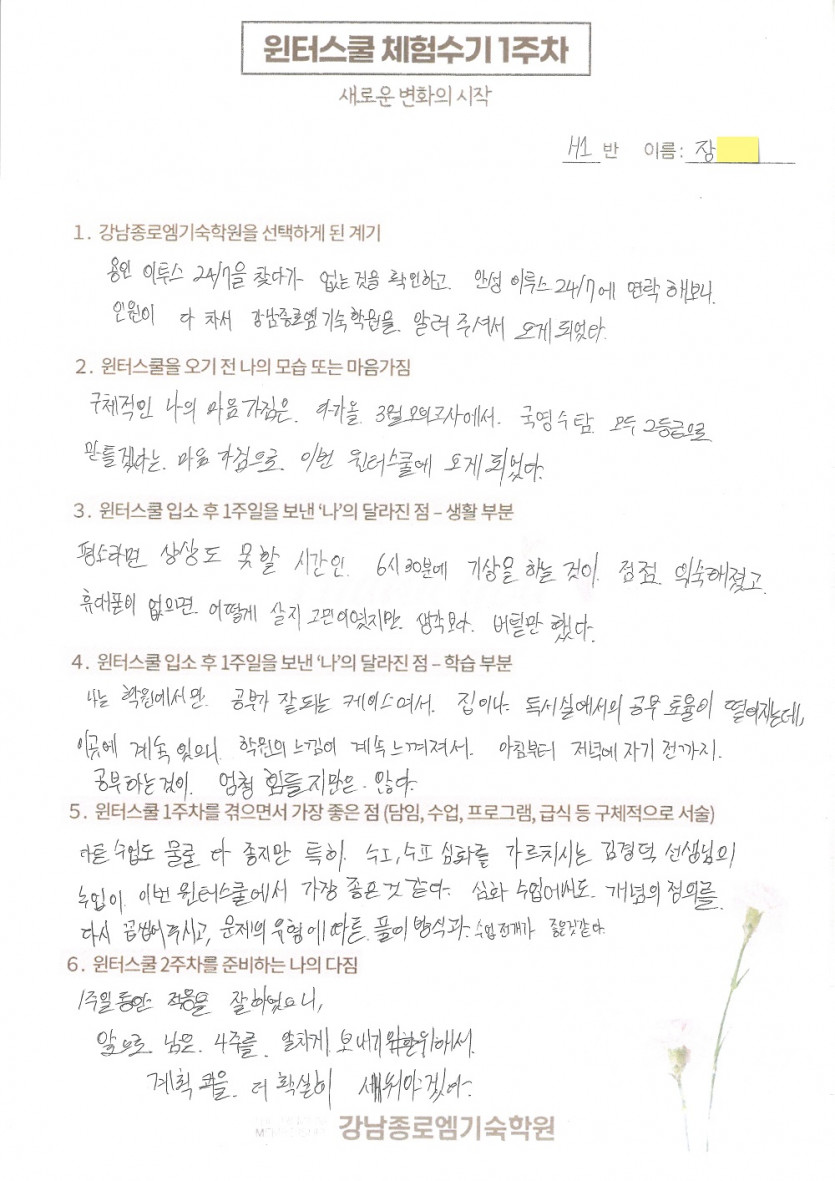 윈터스쿨 체험수기 1주차
새로운 변화의 시작
H1 반 이름: 장
1. 강남종로엠기숙학원을 선택하게 된 계기
용인 이투스 24/7을 찾다가 없는 것을 확인하고. 안성 이투스 24/7에 연락 해보니.
인원이 다 차서 강남종로엠 기숙학원을 알려 주셔서 오게 되었다.
2. 윈터스쿨을 오기 전 나의 모습 또는 마음가짐
구체적인 나의 마음가짐은. 다가올 3월 모의고사에서. 국영수탐 모두 2등급으로
만들겠다는. 마음 가짐으로. 이번 윈터스쿨에 오게 되었다.
3. 윈터스쿨 입소 후 1주일을 보낸 '나'의 달라진 점 – 생활 부분
평소라면 상상도 못할 시간인. 6시 30분에 기상을 하는 것이. 점점. 익숙해졌고.
휴대폰이 없으면. 어떻게 살지 고민이였지만. 생각보다. 버틸만 했다.
4. 윈터스쿨 입소 후 1주일을 보낸 '나'의 달라진 점 – 학습 부분
나는 학원에서만. 공부가 잘 되는 케이스여서. 집이나. 독서실에서의 공부 효율이 떨어지는데,
이곳에 계속 있으니. 학원의 느낌이 계속 느껴져서. 아침부터 저녁에 자기 전까지.
공부하는것이. 엄청 힘들지만은. 않다.
5. 윈터스쿨 1주차를 겪으면서 가장 좋은 점 (담임, 수업, 프로그램, 급식 등 구체적으로 서술)
다른 수업도 물론 다 좋지만 특히. 수I, 수II 심화를 가르치시는 김경덕 선생님의
수업이. 이번 윈터스쿨에서 가장 좋은 것 같다. 심화 수업에서도. 개념의 정의를.
다시 곱씹어주시고, 문제의 유형에 따른. 풀이 방식과. 수업 전개가 좋은것같다.
6. 윈터스쿨 2주차를 준비하는 나의 다짐
1주일동안 적응을 잘 하였으니,
앞으로. 남은. 4주를. 알차게. 보내기 위해서.
계획을. 더 확실히 세워야겠다.
강남종로엠기숙학원